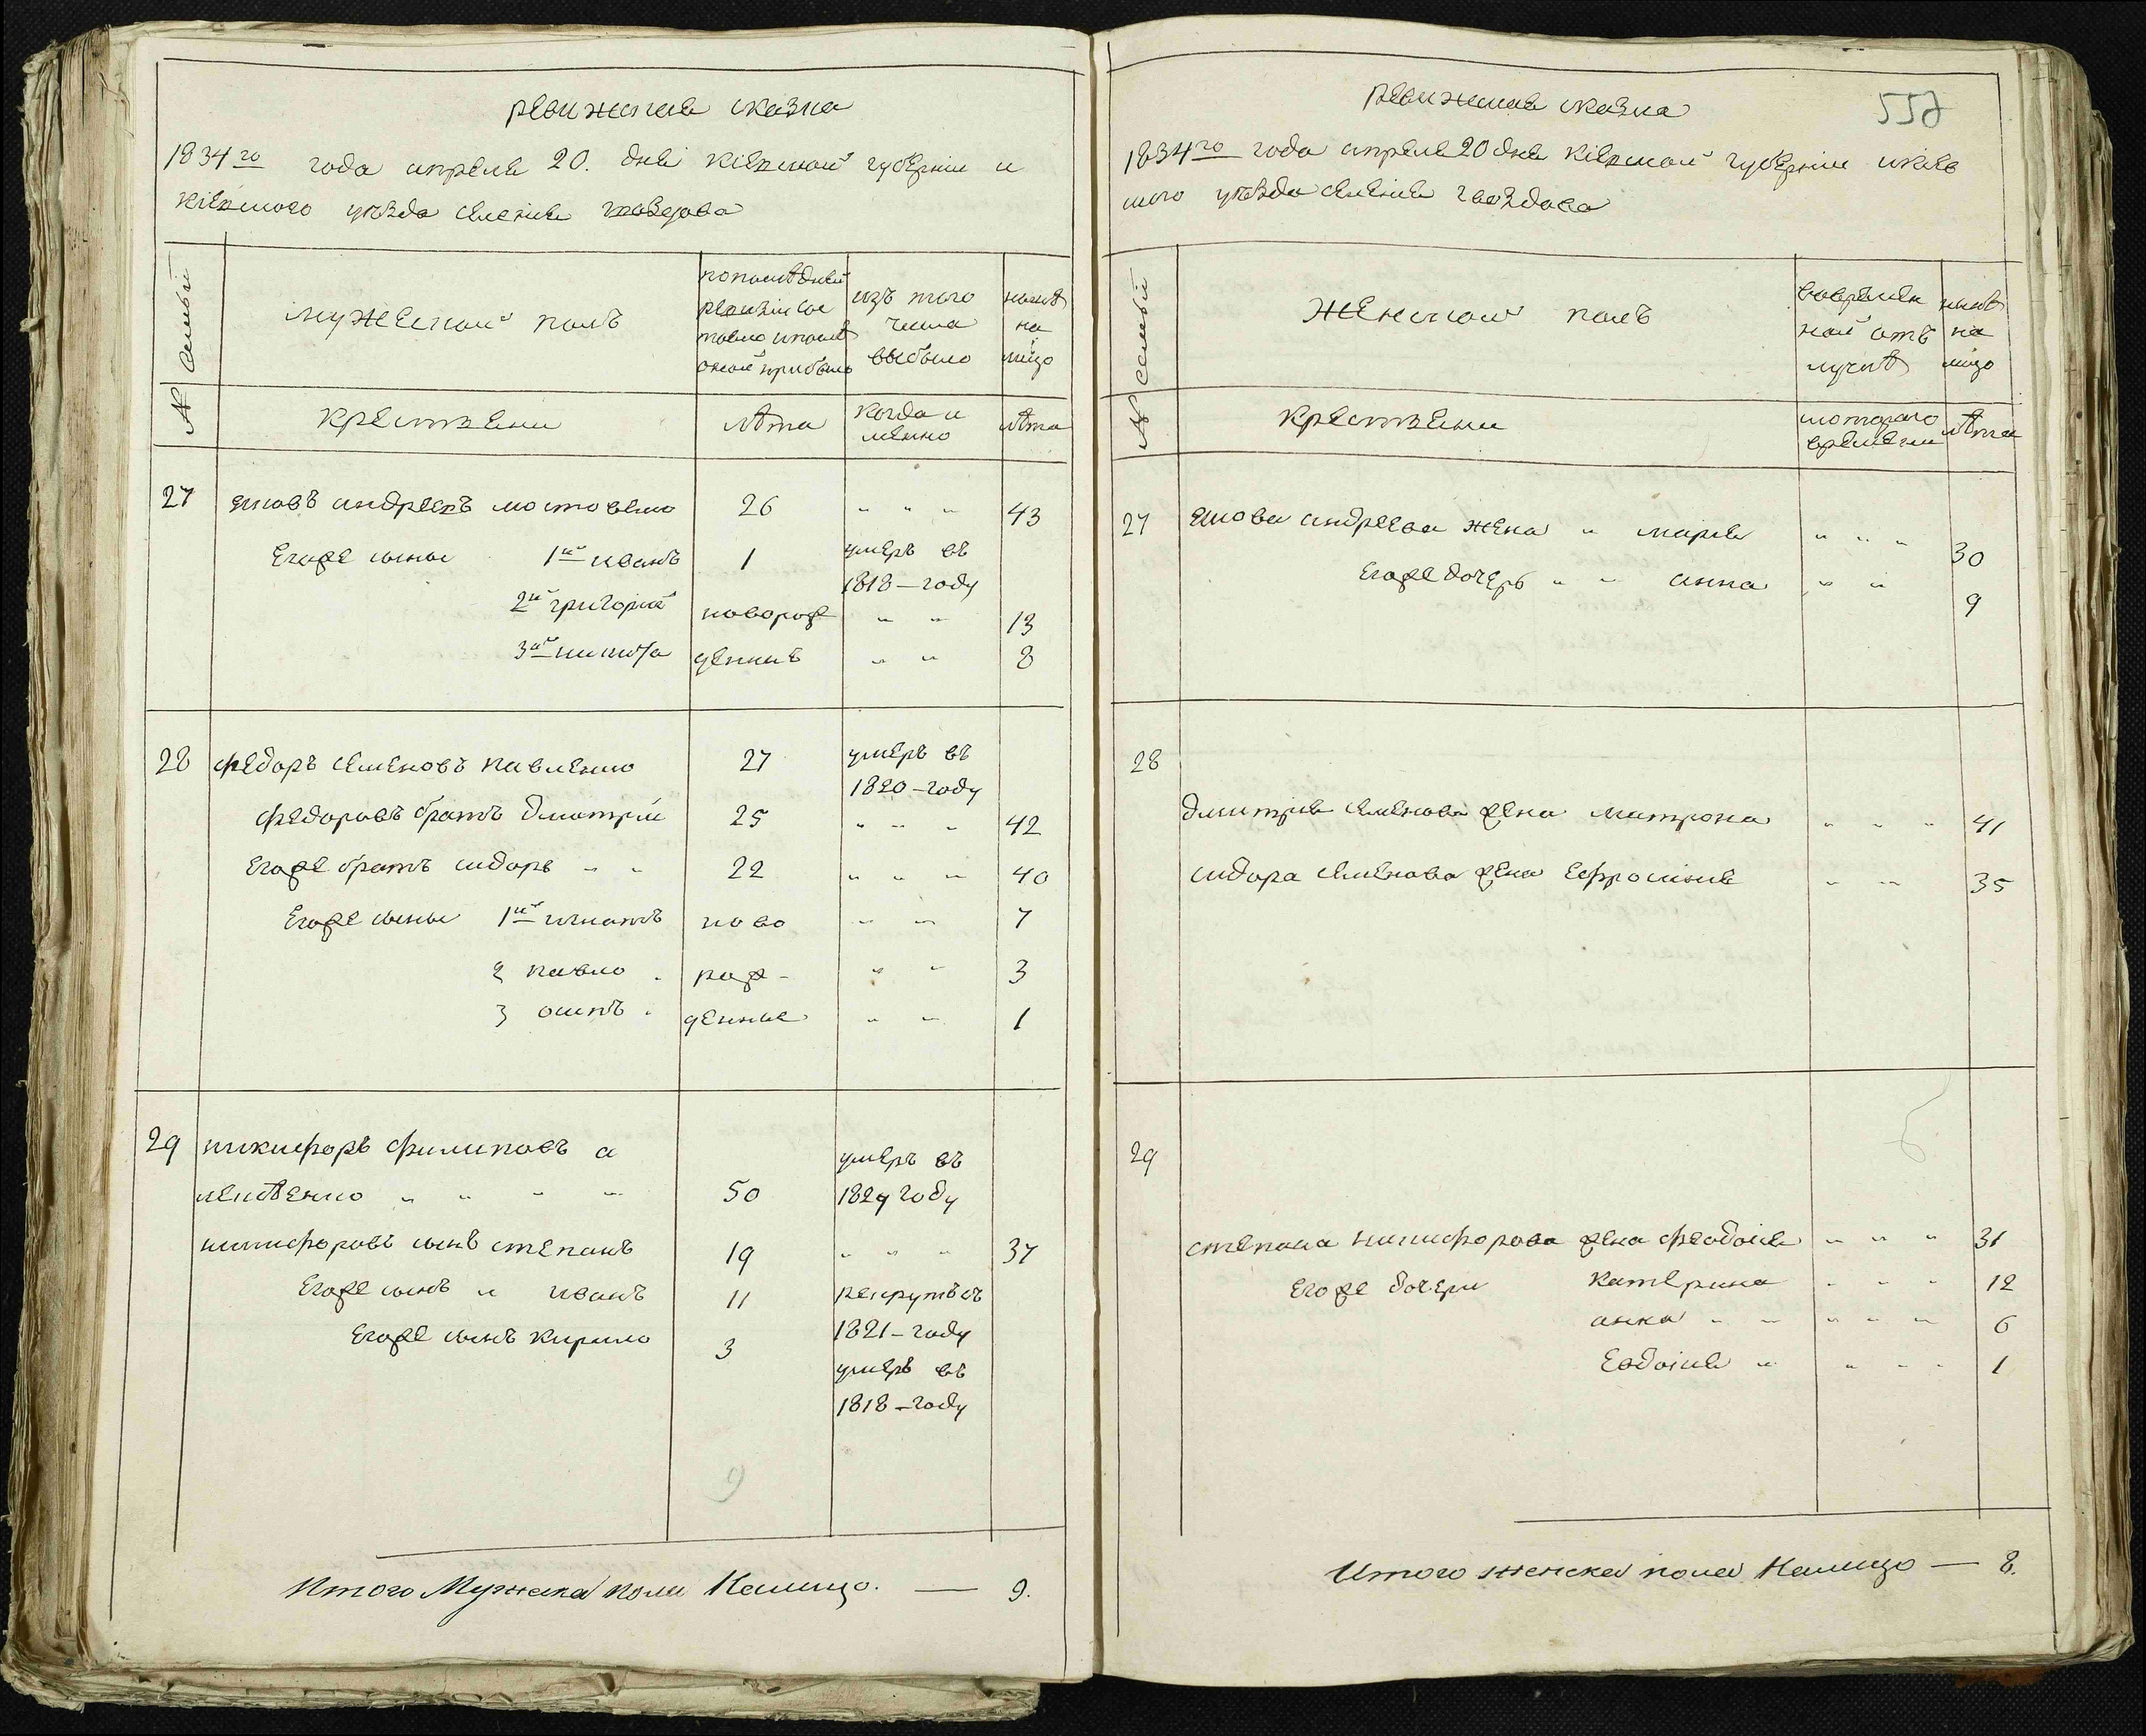 ревижская сказка
1834го года апреля 20. дня кіевской губерніи и
кіевского уезда селенія гвоздова
№ семьи
мужеской полъ
попоследней
ревизіи сос
тояло и после
оной прибыло
изъ того
числа
выбыло
ныне
на
лицо
крестьяни
лета
когда и
менно
лета
27 яковъ андреевъ мостовенко 26 " " " 43
Егоже сыны 1й иванъ 1 умеръ въ
1818-году
2й григорій новорож " " 13
3й никита денные " " 8
28 федоръ семеновъ павленко 27 умеръ въ
1820-году
федоровъ братъ дмитрій 25 " " " 42
Егоже братъ сидоръ " " 22 " " " 40
Егоже сыны 1й игнатъ ново " " 7
2 павло рож- " " 3
3 осипъ денные " " 1
29 никифоръ филиповъ а
лексеенко " " " " 50 умеръ въ
1829 году
никифоровъ сынъ степанъ 19 " " " 37
Егоже сынъ " иванъ 11 рекрутъ съ
1821-году
Егоже сынъ кирило 3 умеръ въ
1818-году
9
Итого Мужеска пола Налицо. — 9.
ревижская сказка
557
1834го года апреля 20 дня кіевской губерніи и кіев
ского уезда селенія гвоздова
№ семьи
женской полъ
вовремен
ной отъ
лучке
ныне
на
лицо
крестьяни
с которого
времени
лета
27 якова андреева жена " марья " " " 30
Егоже дочерь " " анна " " 9
28
дмитрія семенова жена матрона " " " 41
сидора семенова жена ефросинія " " 35
29
степана никифорова жена феодосія " " " 31
Егоже дочери катерина " " " 12
анна " " " " " 6
Евдокія " " " " 1
Итого женска пола Налицо — 8.